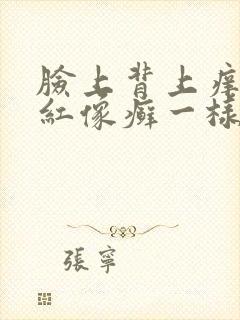 臉上背上痒
紅像癬一樣
張寧